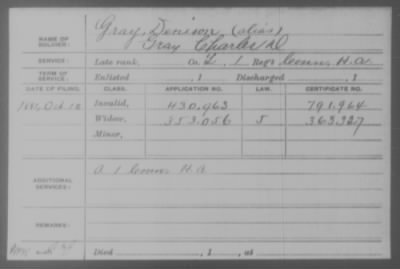 NAME OF SOLDIER: Gray, Denison (alias)
Gray Charles D
SERVICE: Late rank, Co. L, 1 Reg't Conn. H.A.
TERM OF SERVICE: Enlisted , 1 Discharged , 1
DATE OF FILING. CLASS. APPLICATION NO. LAW. CERTIFICATE NO.
Invalid, 430.963 791.964
Widow, 353.056 J 363.327
Minor,
ADDITIONAL SERVICES: 1 Conn H.A.
REMARKS:
Died , 1 , at